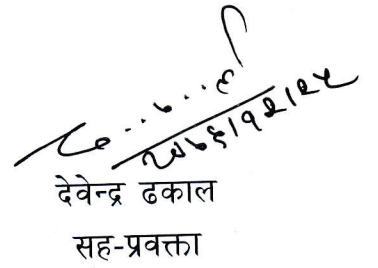 २०७६।१२।२५
देवेन्द्र ढकाल
सह-प्रवक्ता